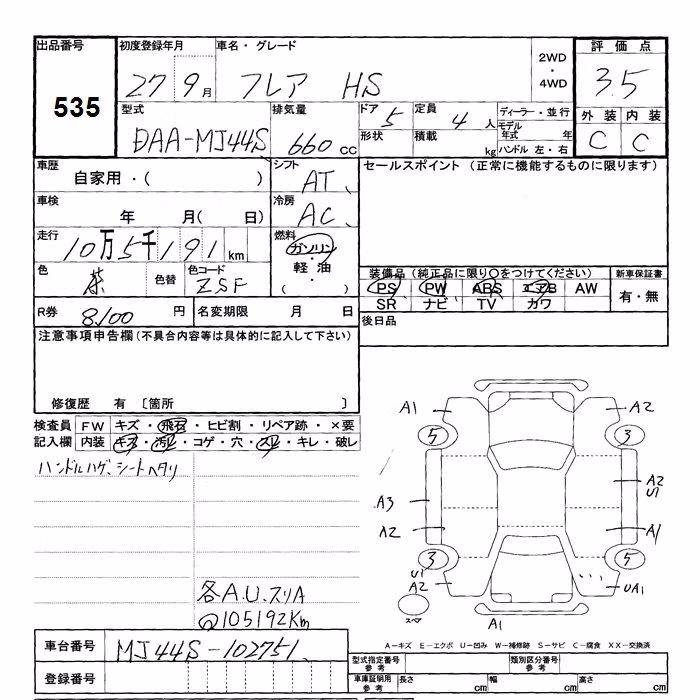 出品番号 初度登録年月 車名・グレード 2WD・4WD 評価点
535 27 9月 フレア HS 3.5
型式 排気量 ドア 5 定員 4人 ディーラー・並行 外装 内装
DAA-MJ44S 660cc 形状 積載 kg モデル年式 年 C C
ハンドル 左・右
車歴 シフト セールスポイント（正常に機能するものに限ります）
自家用・（ ） AT
車検 冷房
年 月（ 日） AC
走行 燃料
10万5千191km ガソリン・軽油
（ ）
色 色替 色コード 装備品（純正品に限り○をつけてください） 新車保証書
茶 ZSF PS PW ABS エアB AW 有・無
SR ナビ TV カワ
R券 8100円 名変期限 月 日 後日品
注意事項申告欄（不具合内容等は具体的に記入して下さい）
修復歴 有 〔箇所 〕
検査員 FW キズ・飛石・ヒビ割・リペア跡・×要
記入欄 内装 キズ・汚レ・コゲ・穴・スレ・キレ・破レ
ハンドルハゲ、シートヘタリ
A1 A2
5 3
A2
U1
A3
A2 A1
3 5
U1
A2 UA1
スペア A1
各A.U.スリA
@105192Km
A－キズ E－エクボ U－凹み W－補修跡 S－サビ C－腐食 XX－交換済
車台番号 MJ44S-102751 型式指定番号 参考 類別区分番号 参考
登録番号 車庫証明用 参考 長さ cm 幅 cm 高さ cm